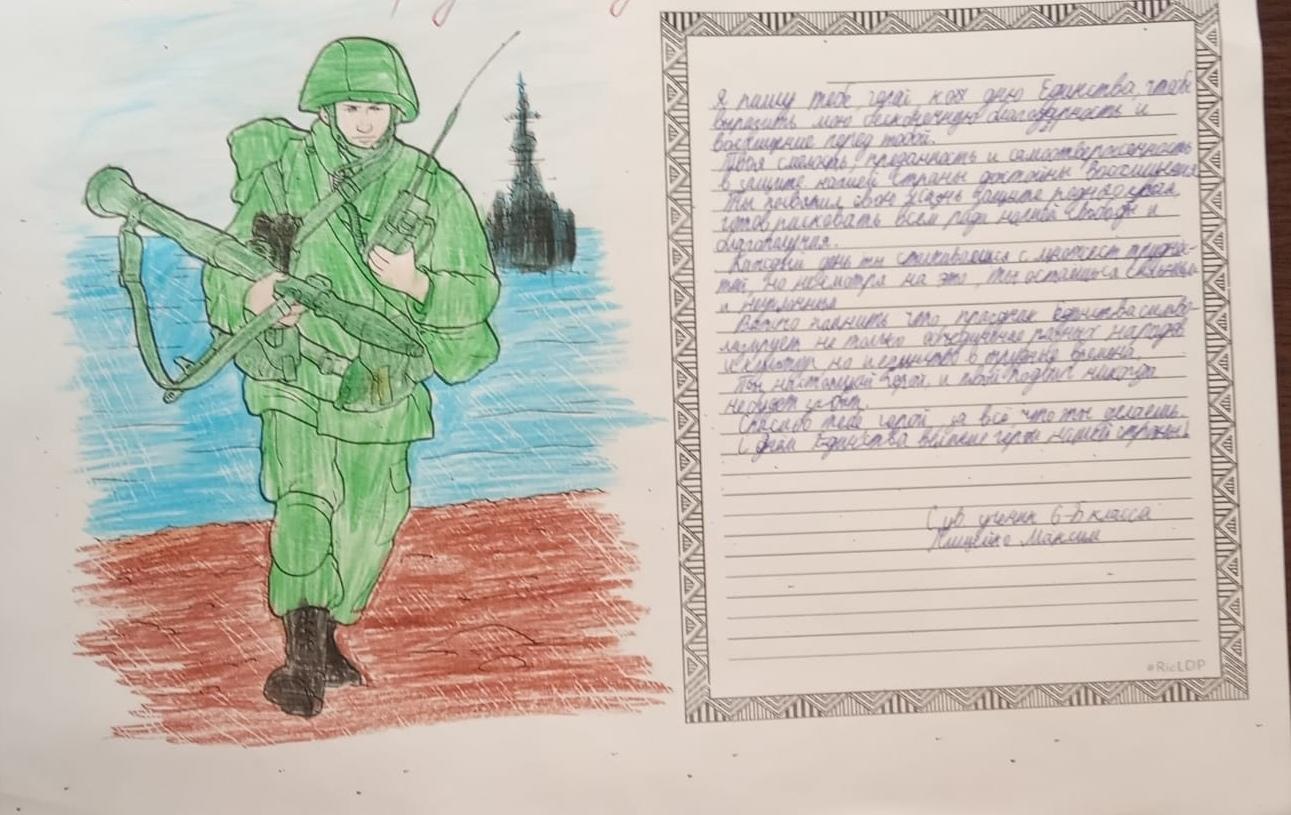 Я пишу тебе, герой, ко дню Единства, чтобы
выразить мою бесконечную благодарность и
восхищение перед тобой.
Твоя смелость, преданность и самоотверженность
в защите нашей страны достойны восхищения
Ты посвятил свою жизнь защите родного края,
готов рисковать всем ради нашей свободы и
благополучия.
Каждый день ты сталкиваешься с множест трудно-
тей, но несмотря на это, ты остаешься сильным
и
Важно помнить что праздник Единства симво-
лизирует не только объединение разных народов
и культур, но и единство в трудные времена.
Ты настоящий герой, и твой подвиг никогда
не будет забыт.
Спасибо тебе герой, за всё что ты делаешь.
С днём Единства великие герои нашей страны!
С ув. ученик 6-Б класса
Максим
#RicLDP